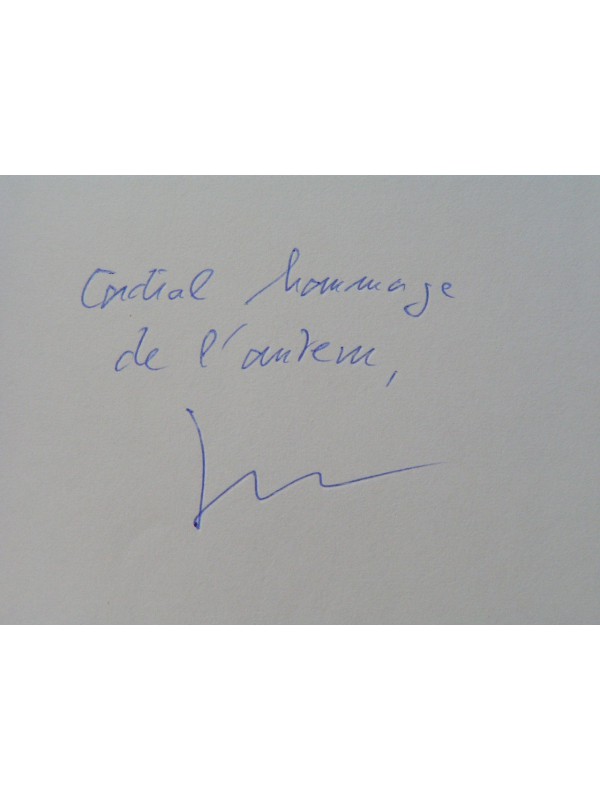 Cordial hommage
de l'auteur,